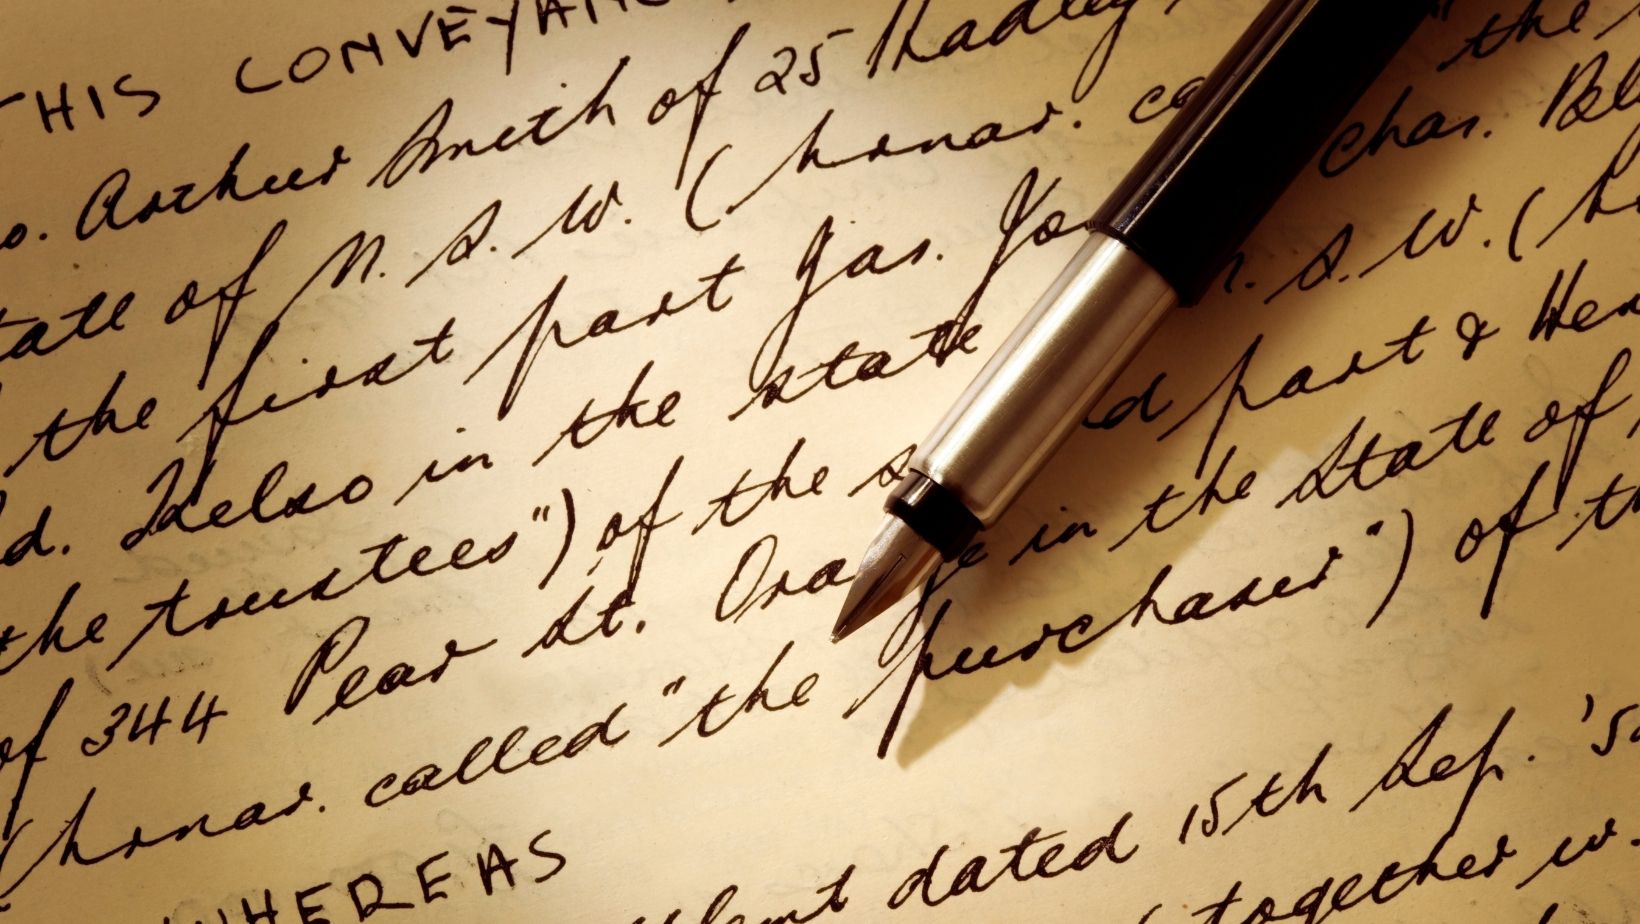 THIS CONVEYANC
o. Arthur Smith of 25 Hadley
tate of N. S. W. (hrnar. ca the
the first part Jas. Jo Chas. Bel
d. Kelso in the state N. S. W. (h
the trustees") of the s d part & Hen
of 344 Pear St. Orange in the State of
(hrnar. called "the purchaser") of th
WHEREAS
dated 15th Sep. '5
together w.